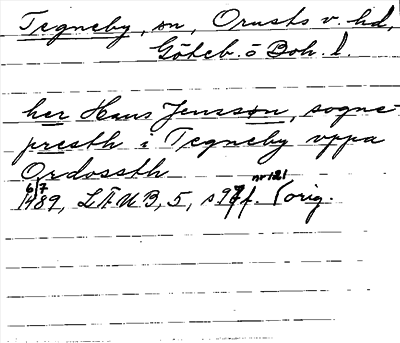 Tegneby, sn, Orusts v. hd,
Göteb. o Boh. l.
her Hans Jenssøn, sogne-
presth i Tegneby vppa
Ordossth
6/7 nr 121
1489, LÄUB, 5, s 97f. (orig.